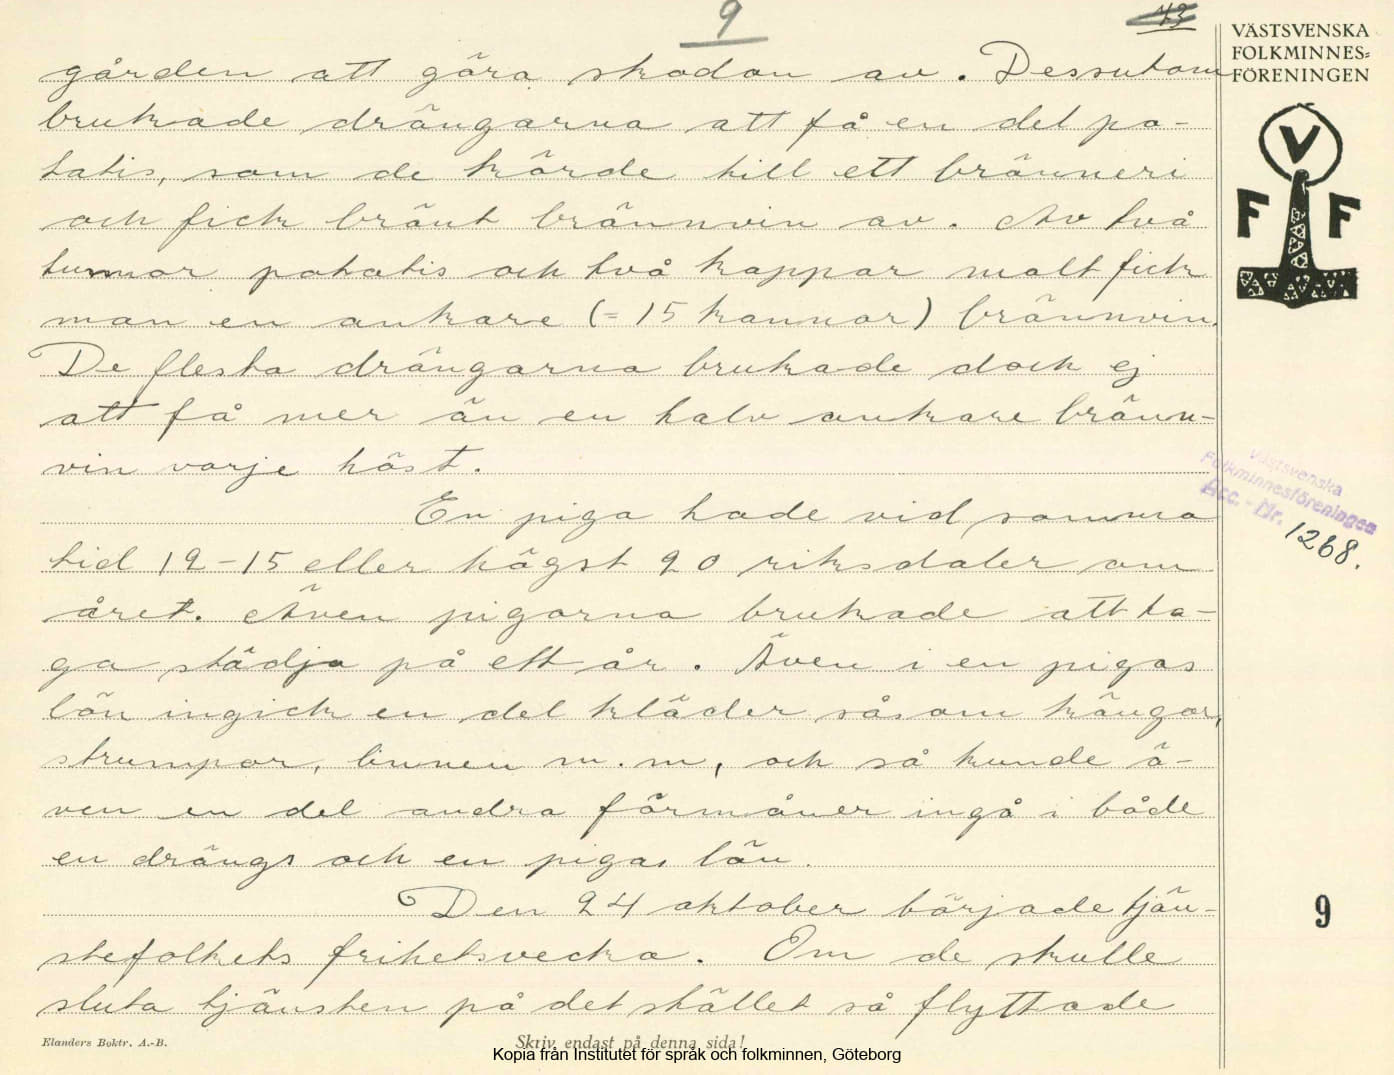 9
73
VÄSTSVENSKA
FOLKMINNES=
FÖRENINGEN
V
F F
gården att göra skodon av. Dessutom
brukade drängarna att få en del po-
tatis, som de körde till ett bränneri
och fick bränt brännvin av. Av två
tunnor potatis och två kappar malt fick
man en ankare (= 15 kannor) brännvin.
De flesta drängarna brukade dock ej
att få mer än en halv ankare bränn-
vin varje höst.
En piga hade vid samma
tid 12-15 eller högst 20 riksdaler om
året. Även pigorna brukade att ta-
ga städja på ett år. Även i en pigas
lön ingick en del kläder såsom kängor,
strumpor, linnen m.m, och så kunde ä-
ven en del andra förmåner ingå i både
en drängs och en pigas lön.
Den 24 oktober började tjän-
stefolkets frihetsvecka. Om de skulle
sluta tjänsten på det stället så flyttade
Västsvenska
Folkminnesföreningen
Acc. - Nr. 1268.
9
Elanders Boktr. A.-B.
Skriv endast på denna sida!
Kopia från Institutet för språk och folkminnen, Göteborg